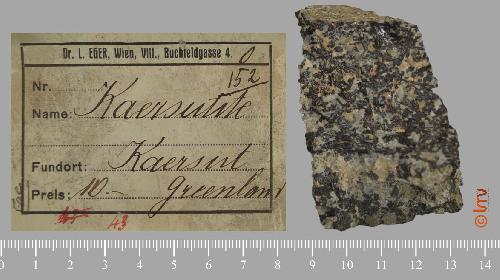 Dr. L. EGER, Wien, VIII., Buchfeldgasse 4.
Nr. 152
Name: Kaersutite
Fundort: Kaersut
Preis: 10.- Greenland
43
0 1 2 3 4 5 6 7 8 9 10 11 12 13 14
© lmv